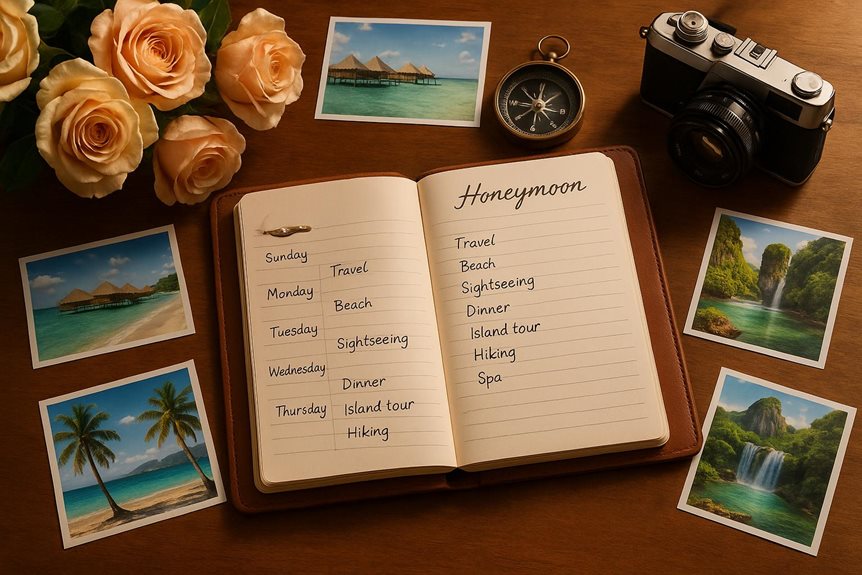 Sunday
Travel
Monday
Beach
Tuesday
Sightseeing
Wednesday
Dinner
Thursday
Island tour
Hiking
Honeymoon
Travel
Beach
Sightseeing
Dinner
Island tour
Hiking
Spa